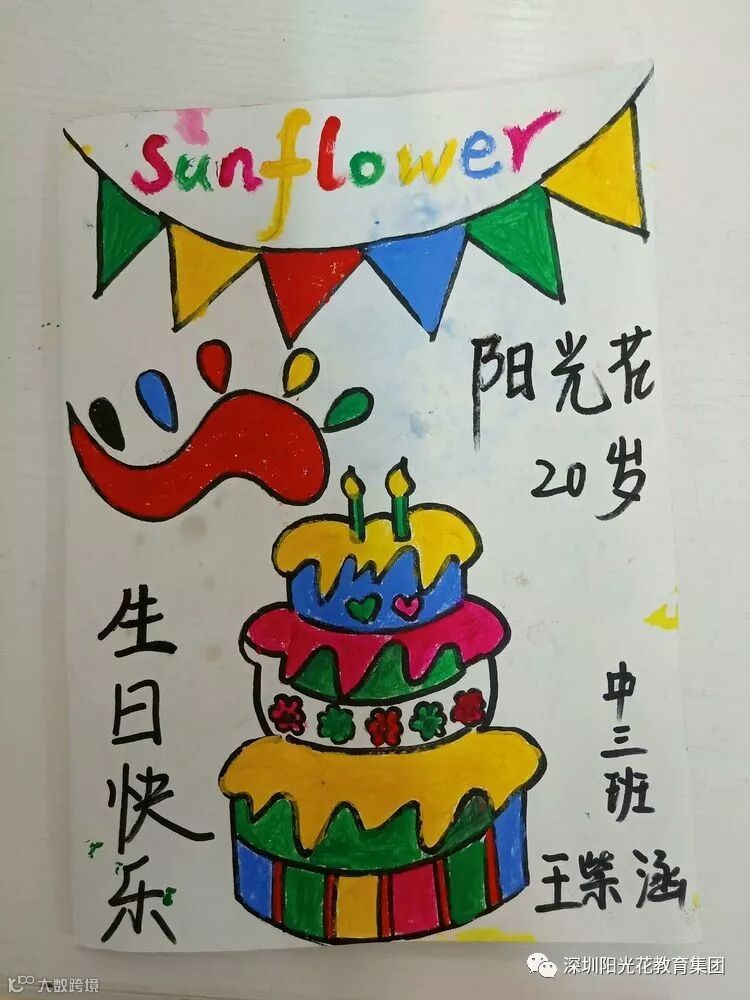 sunflower
阳光花
20岁
生日快乐
中三班
王紫涵
深圳阳光花教育集团
大数跨境